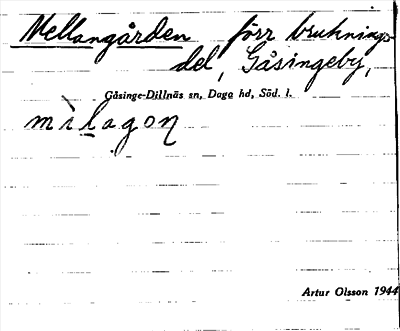 Mellangården förr bruknings-
del, Gåsingeby,
Gåsinge-Dillnäs sn, Daga hd, Söd. l.
mìlagoɳ
Artur Olsson 1944